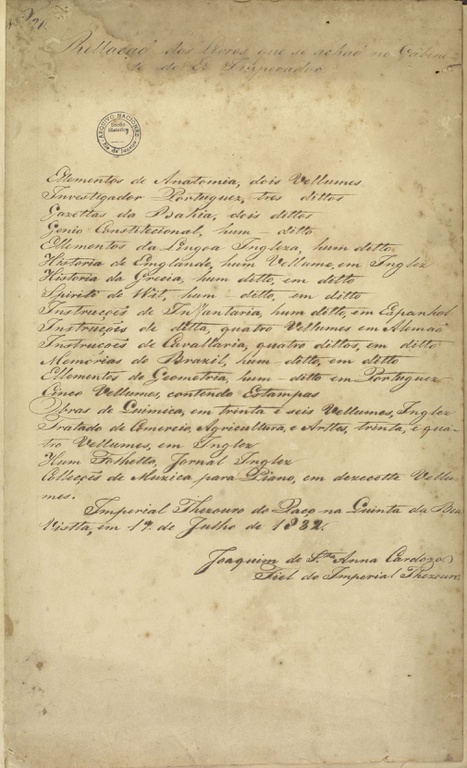 Rellaçaõ dos Livros que se achaõ no Gabine-
te do Imperador
ARQUIVO NACIONAL
Rio de Janeiro
Ellementos de Anatomia, dois Vellumes
Investigador Portuguez, tres dittos
Gazettas da Bahia, dois dittos
Genio Constitucional, hum - ditto
Ellementos da Lingoa Ingleza, hum ditto
Historia de Englande, hum Vellume, em Inglez
Historia da Grecia, hum ditto, em ditto
Spirito de Wil, hum - ditto, em ditto
Instrucçoẽs de Infantaria, hum ditto, em Espanhol
Instruçoẽs de ditta, quatro Vellumes em Alemaõ
Instruçoẽs de Cavallaria, quatro dittos, em ditto
Memórias do Brazil, hum - ditto, em ditto
Ellementos de Geometria, hum - ditto em Portuguez
Cinco Vellumes, contendo Estampas
Obras de Quimica, em trinta e seis Vellumes, Inglez
Tratado de Comercio, Agricultura, e Arttes, trinta, e qua-
tro Vellumes, em Inglez
Hum Folhetto, Jornal Inglez
Collecçoẽs de Muzica para Piano, em dezoootto Vellu-
mes.
Imperial Thezouro do Paço na Quinta da Boa
Vistta, em 1º de Julho de 1832.
Joaquim de S.ta Anna Cardozo
Fiel do Imperial Thezouro